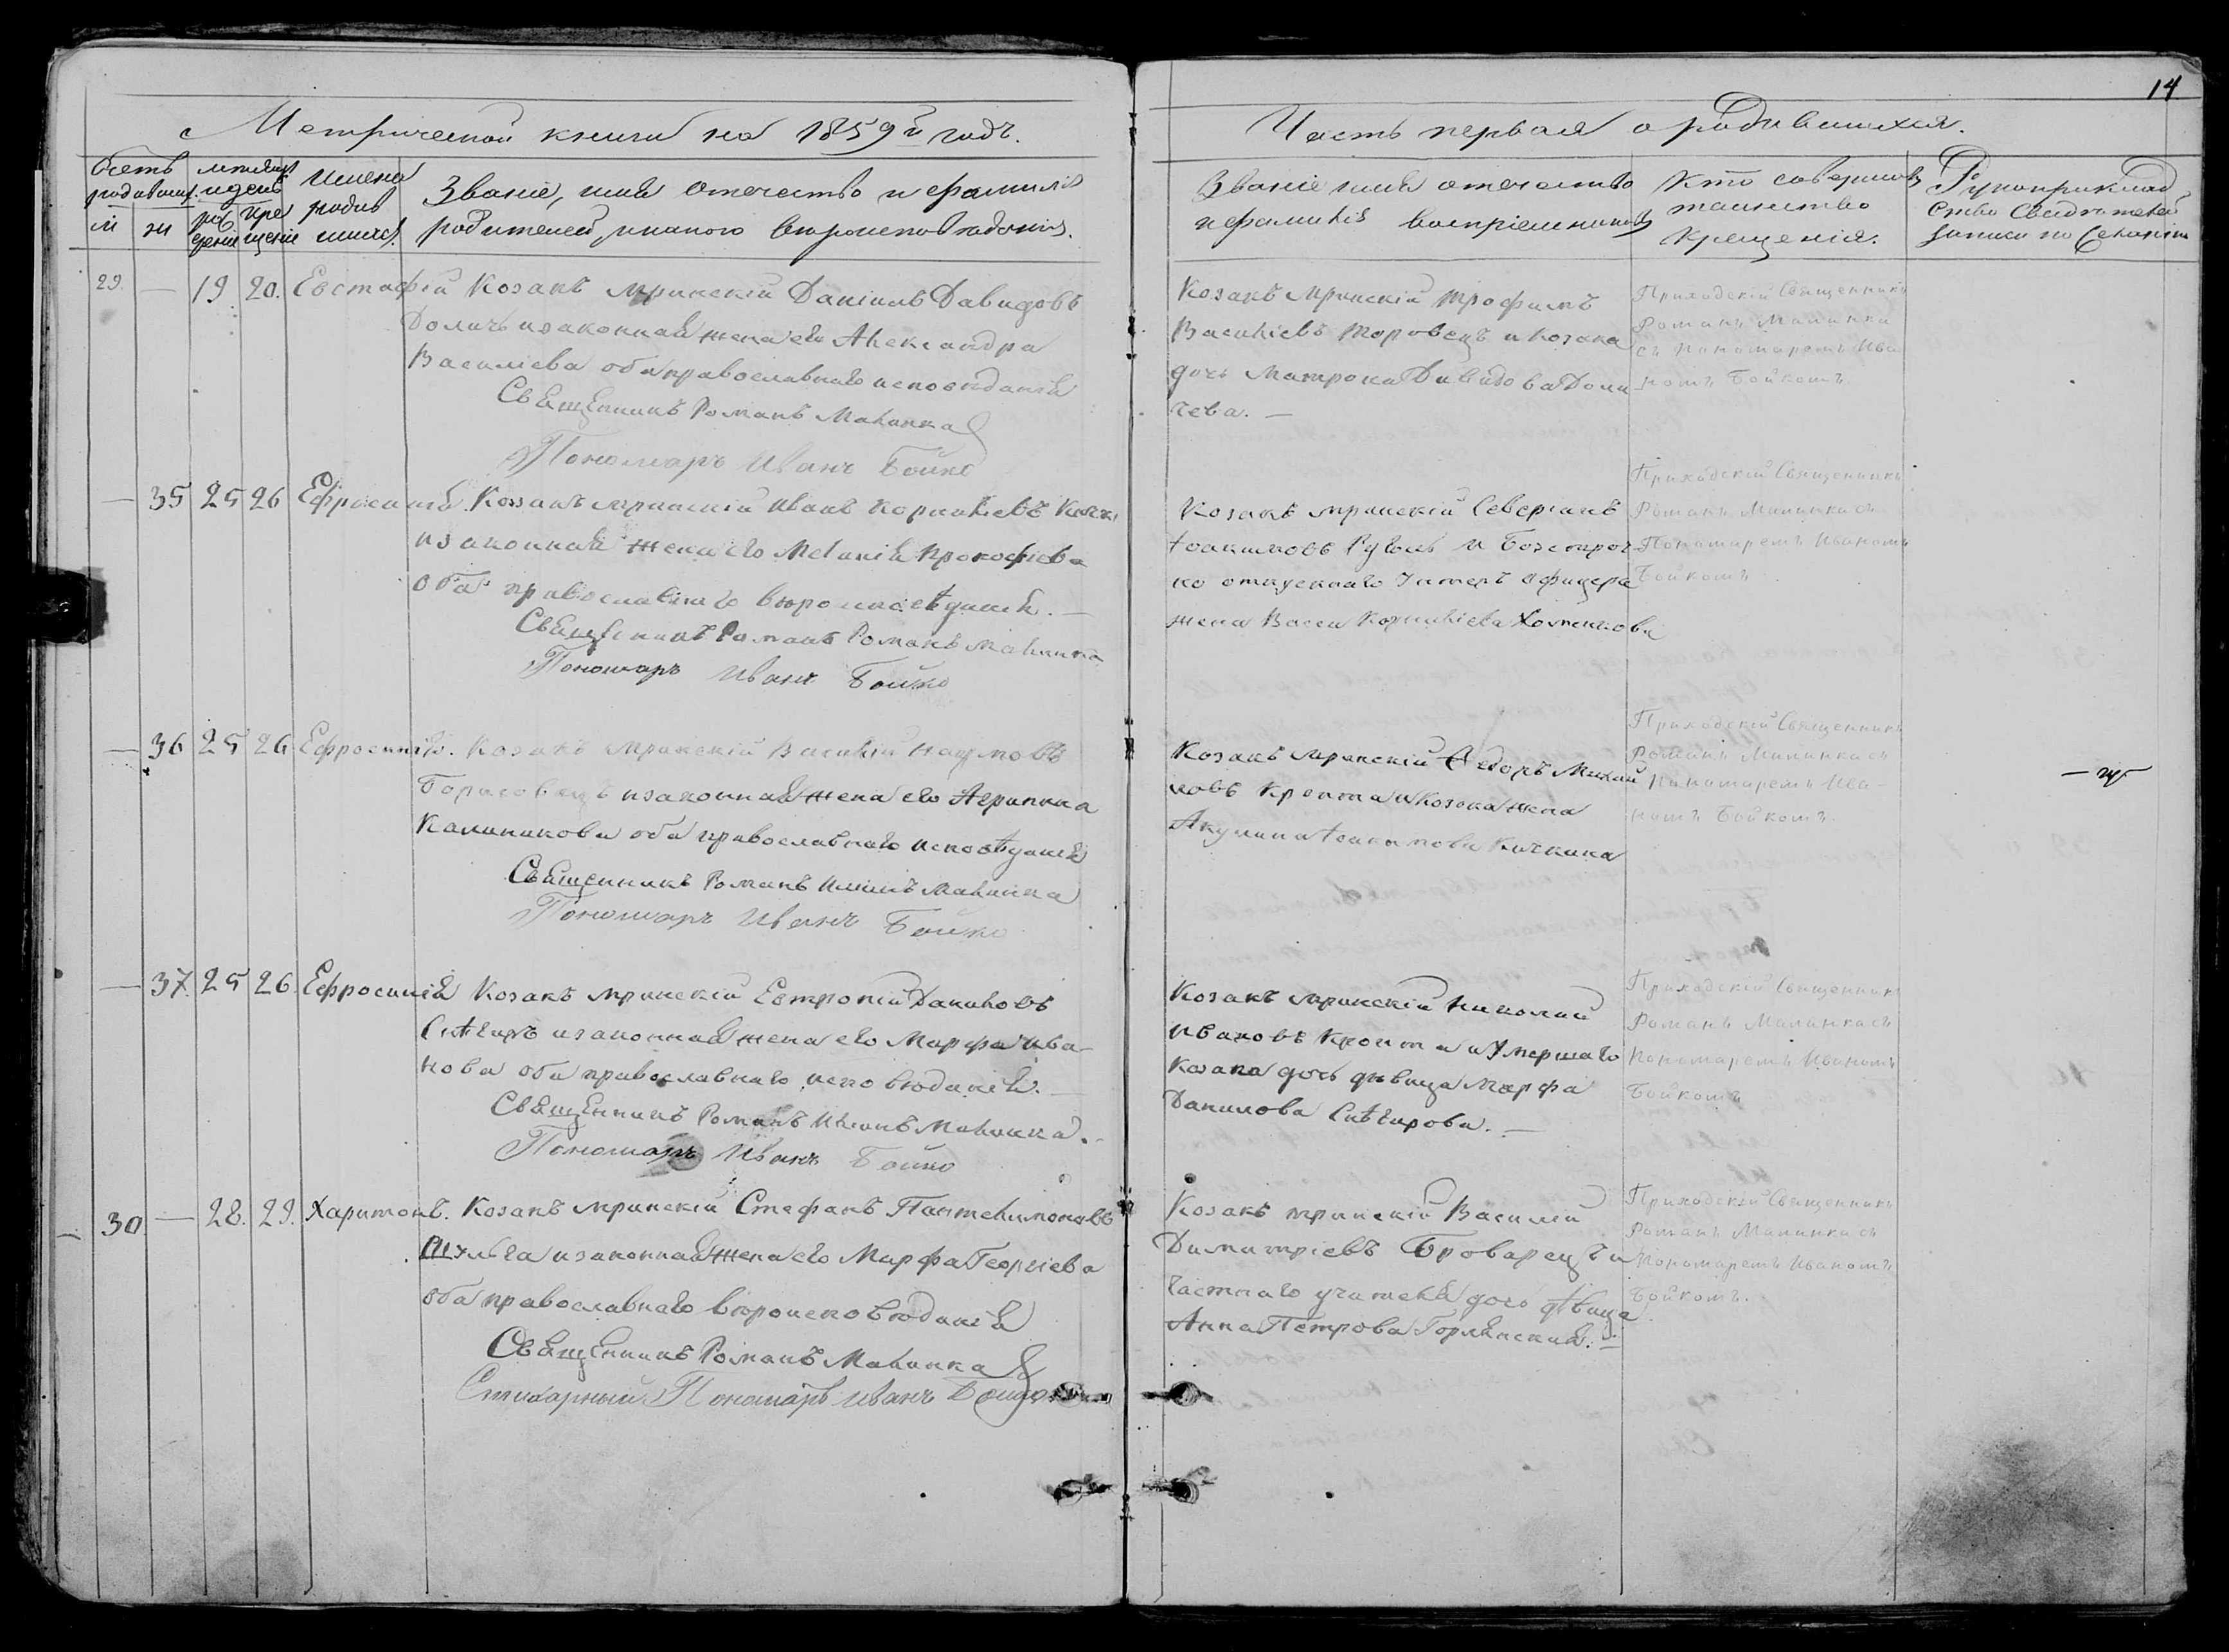 14
Метрической книги на 1859й годъ.
Часть первая о родившихся.
мѣсяцъ
и день
имена
родив
шихся.
м
ж
Званіе, имя отечество и фамилія
родителей, и какого вѣроисповѣданія.
Званіе имя отечество
и фамилія воспріемниковъ
Кто совершилъ
таинство
крещенія.
Рукоприклад
ство Свидѣтелей
записи по желанію
29. — 19. 20. Евстафій Козакъ мринскій Даніилъ Давидовъ
Доличъ и законная жена его Александра
Василіева оба православнаго исповѣданія
Священникъ Романъ Малинка
Пономарь Иванъ Бойко
Козакъ Мринскій Трофимъ
Василіевъ Торовецъ и козака
дочь Матрона Давидова Доли
чева. —
Приходскій Священникъ
Романъ Малинка
съ Пономаремъ Ива
номъ Бойкомъ.
— 35 25 26 Ефросинія. Козакъ мринскій Иванъ Корниліевъ
и законная жена его Меланія Прокофіева
оба православнаго вѣроисповѣданія. —
Священникъ Романъ Романъ Малинка
Пономарь Иванъ Бойко
Козакъ мринскій Северіанъ
Іоакимовъ и безсроч
но отпускнаго Унтеръ офицера
жена Васса Корниліева
Приходскій Священникъ
Романъ Малинка съ
Пономаремъ Иваномъ
Бойкомъ
— 36 25 26 Ефросинія. Козакъ Мринскій Василій Наумовъ
Борисовецъ и законная жена его Агрипина
Калиникова оба православнаго исповѣданія
Священникъ Романъ Малинка
Пономарь Иванъ Бойко
Козакъ мринскій Ѳедоръ Михай
ловъ Кропта и козака жена
Акулина Іоакимова
Приходскій Священникъ
Романъ Малинка съ
Пономаремъ Ива-
номъ Бойкомъ.
— 37. 25 26. Ефросинія Козакъ мринскій Евтропій Даниловъ
Снѣгиръ и законная жена его Марфа Ива-
нова оба православнаго исповѣданія. —
Священникъ Романъ Малинка. -
Пономарь Иванъ Бойко
Козакъ мринскій Николай
Ивановъ Кропта и Умершаго
козака дочь дѣвица Марфа
Данилова Снѣгирова. —
Приходскій Священникъ
Романъ Малинка съ
Пономаремъ Иваномъ
Бойкомъ
30 — 28. 29. Харитонъ. Козакъ мринскій Стефанъ Пантелимоновъ
Шульга и законная жена его Марфа Георгіева
оба православнаго вѣроисповѣданія
Священникъ Романъ Малинка
Стихарный Пономарь Иванъ Бойко
Козакъ мринскій Василій
Димитріевъ Броварецъ и
частнаго учителя дочь дѣвица
Анна Петрова
Приходскій Священникъ
Романъ Малинка съ
Пономаремъ Иваномъ
Бойкомъ.